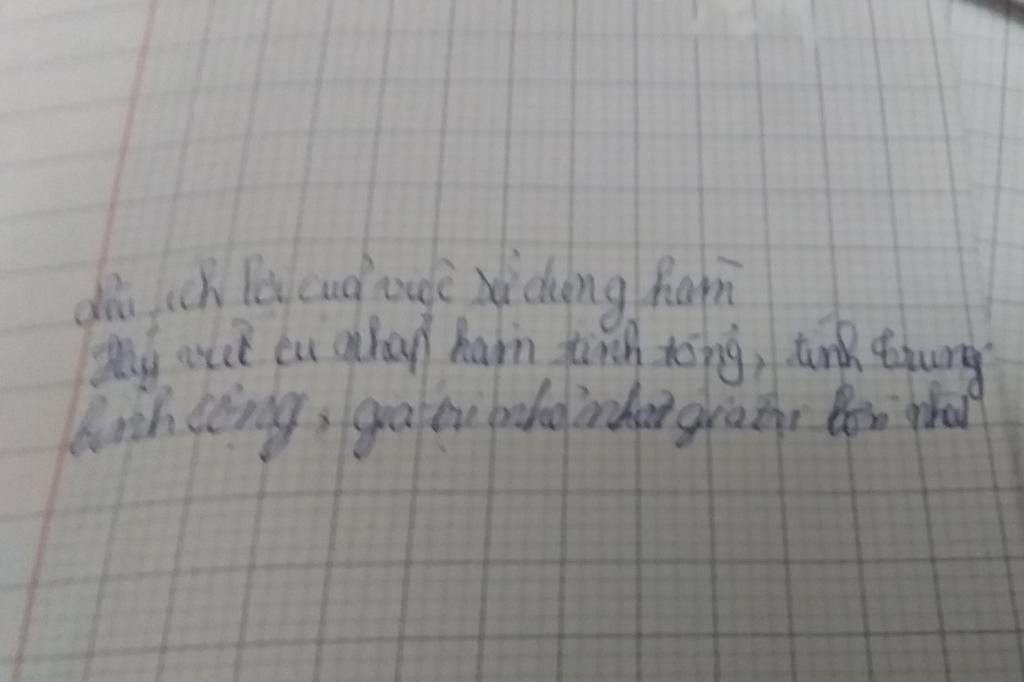 nêu ích lợi của việc sử dụng hàm
Hãy viết cú nháp hàm tính tổng, tính trung
bình cộng, giá trị nhỏ nhất giá trị lớn nhất